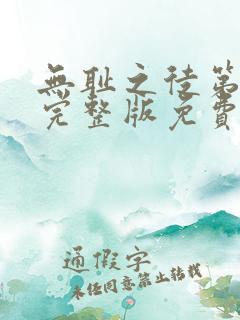 無耻之徒第
完整版免費
通假字
未经同意禁止转载